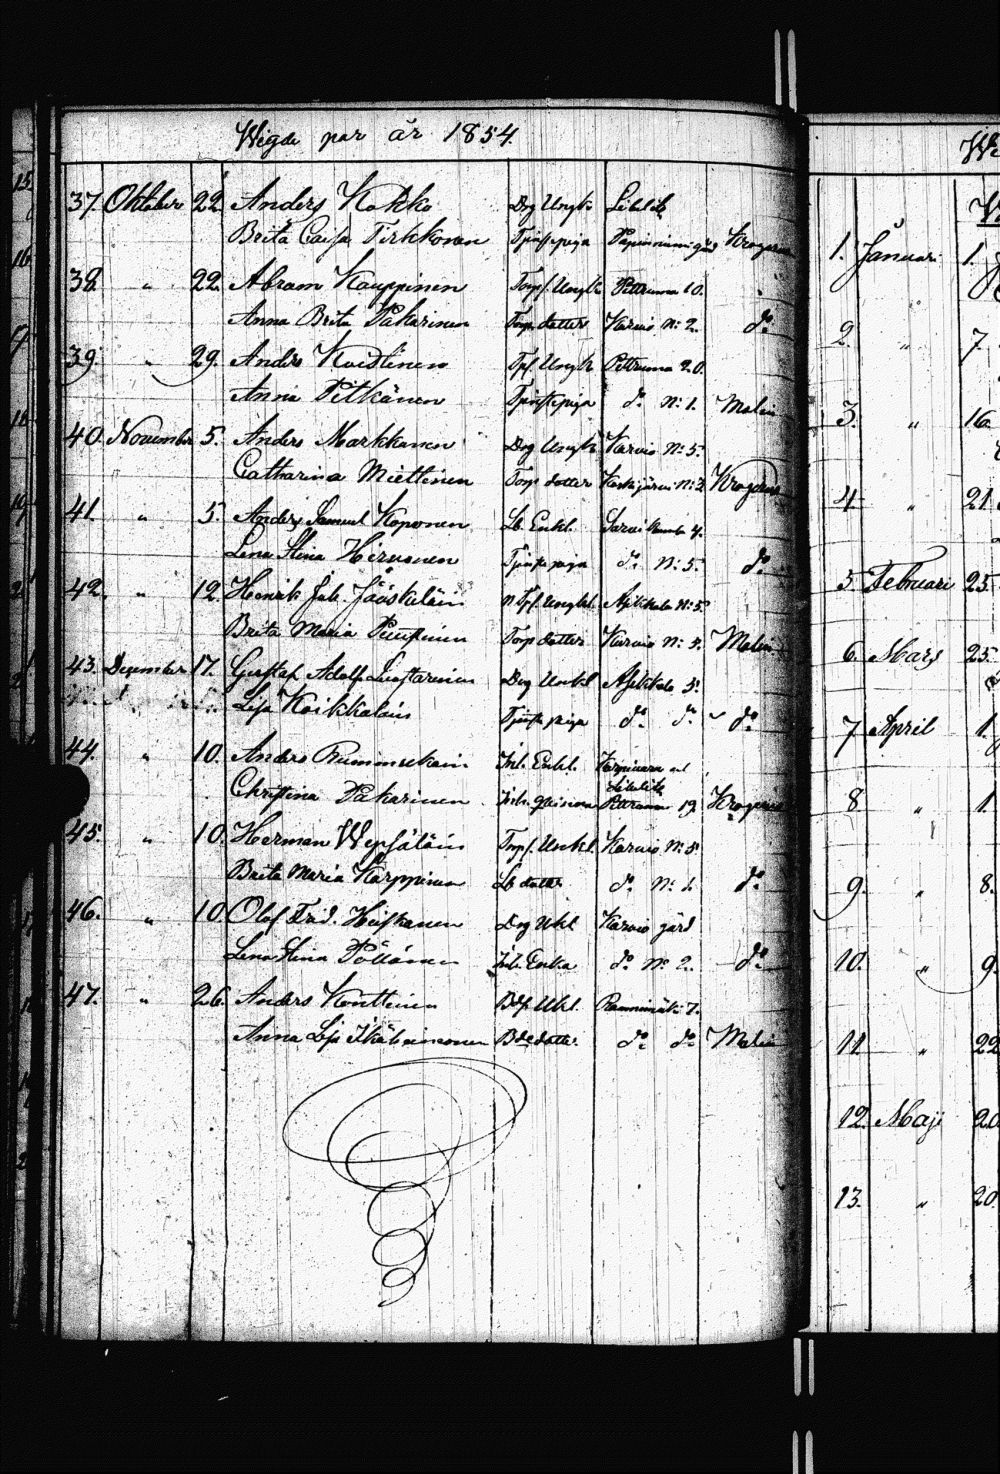 Wigde par år 1854.
37. Oktober 22. Anders Kokko Drg Ungk. Libelitz
Brita Caisa Tirkkonen Tjenstepiga Papinniemi gård Krogerus
38. " 22. Abram Kauppinen Torp. Ungk. Pettruma 10.
Anna Brita Pakarinen Torp. dotter Karvio N:o 2. d:o
39. " 29. Anders Voidlinen Tpf. Ungk. Pettruma 20.
Anna Pitkänen Tjenstepiga d:o N:o 1. Malin
40. November 5. Anders Markkanen Drg Ungk. Karvio N:o 5.
Catharina Miettinen Torp. dotter N:o 2. Krogerus
41. " 5. Anders Samuel Koponen Lb. Enkl. 4.
Lena Stina Hirvonen Tjenstepiga d:o N:o 5. d:o
42. " 12. Henrik Joh. Jääskeläin Tpf. Ungkl. N:o 5.
Brita Maria Torp. dotter Karvio N:o 5. Malin
43. December 17. Gustaf Adolf Drg Unkl. 5.
Lisa Koikkalain Tjenste piga d:o d:o d:o
44. " 10. Anders Inh. Enkl. Libelitz
Christina Pakarinen Inh. Pettruma 19. Krogerus
45. " 10. Herman Wepsäläin Torp. Unkl. Karvio N:o 5.
Brita Maria Karppinen Lb dotter d:o N:o 1. d:o
46. " 10. Olof Frid. Heiskanen Drg Ukl. Karvio gård
Lena Stina Pöllänen Inh. Enka d:o N:o 2. d:o
47. " 26. Anders Konttinen Bdp. Ukl. Rauanmäki 7.
Anna Lisa Ikäheimonen Bde dotter d:o d:o Malin
1. Januari 1.
2. " 7.
3. " 16.
4. " 21.
5. Februari 25.
6. Mars 25.
7. April 1.
8. " 1.
9. " 8.
10. " 9.
11. " 22.
12. Maji 20.
13. " 20.